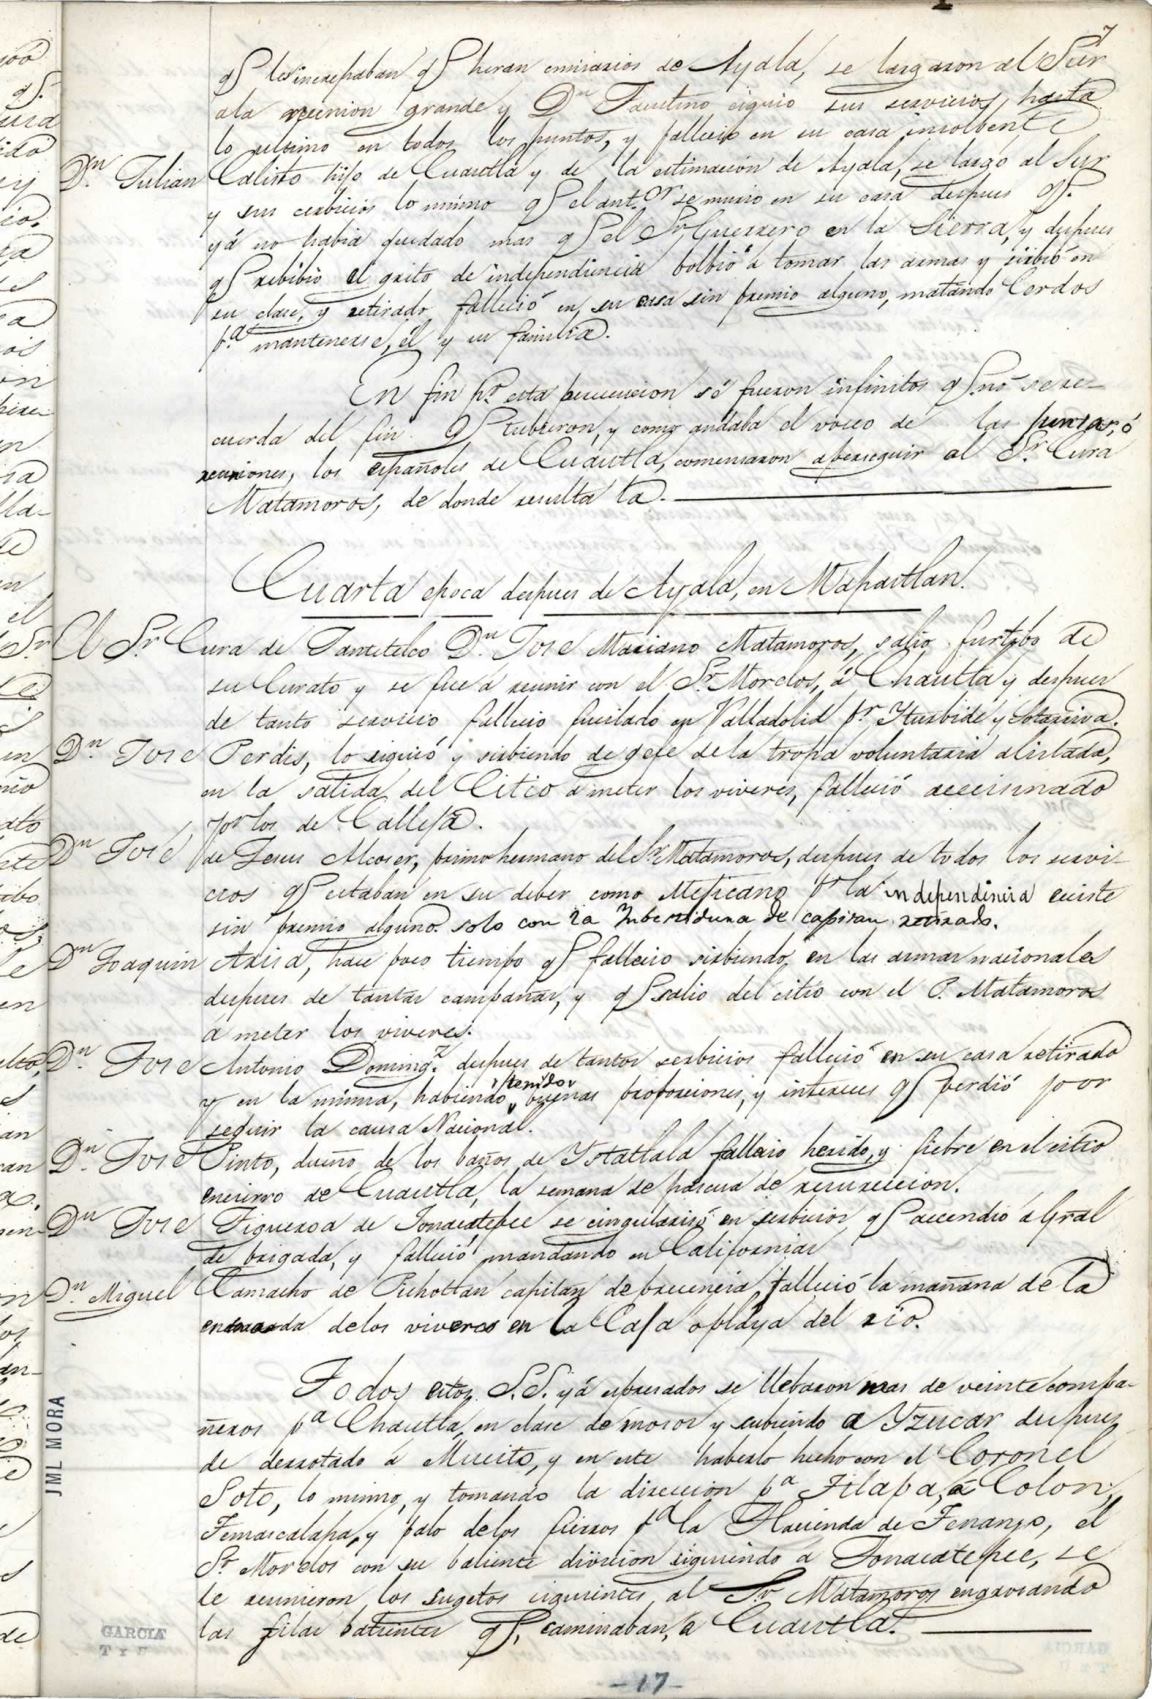 7
qe les increpaban qe heran emisarios de Ayala, se largaron al Sur
ala reunion grande y Dn Faustino siguio sus servicios, hasta
lo ultimo en todos los puntos, y fallecio en su casa insolvente
Dn Julian Calisto hijo de Cuautla y de la estimación de Ayala, se largó al Sur
y sus serbicios lo mismo qe el ant.or se murio en su casa despues qe.
yá no habia quedado mas qe el Sr Guerrero en la Sierra, y despues
qe recibio el grito de independencia bolbió á tomar las armas y sirbió en
su clase, y retirado falleció en su casa sin premio alguno, matando Cerdos
p.a mantenerse, él y su familia.
En fin pr. esta persecucion só fueron infinitos qe no se re-
cuerda del fin qe tubieron, y como andaba el voseo de las juntas, ó
reuniones, los españoles de Cuautla, comensaron aperseguir al Sr. Cura
Matamoros, de donde resulta la.
Cuarta epoca despues de Ayala, en Mapastlan.
El Sr Cura de Jantetelco Dn Jose Mariano Matamoros, salio furtibo de
su Curato y se fue á reunir con el Sr Morelos, á Chautla y despues
de tanto servicio fallecio fucilado en Valladolid pr Yturbide y
Dn Jose Perdis, lo siguió y sirbiendo de gefe de la tropa voluntaria alistada,
en la salida del Citio á meter los viveres, falleció acecinado
por los de Calleja.
Dn José de Jesus Alcoser, primo hermano del Sr Matamoros, despues de todos los servi-
cios qe estaban en su deber como Mejicano pr la independencia existe
sin premio alguno solo con la Imbestidura de capitan retirado.
Dn Joaquin Ariza, hace poco tiempo qe fallecio sirbiendo, en las armas nacionales
despues de tantas campañas, y qe salio del citio con el P. Matamoros
a meter los viveres.
Dn Jose Antonio Doming.z despues de tantos serbicios falleció en su casa retirado
y en la misma, habiendo tenido buenas proporciones, y intereses qe perdió por
seguir la causa Nacional.
Dn Jose Pinto, dueño de los baños de Ystatlala fallecio herido, y fiebre en el citio
encierro de Cuautla, la semana de pascua de resureccion.
Dn Jose Figueroa de Jonacatepec se cingularisó en serbicios, qe accendió á Gral
de brigada, y falleció mandando en Californias
Dn Miguel Camacho de Tichotlan capitan de presencia, falleció la mañana de la
entrada delos viveres en la Caja oplaya del rio.
Todos estos S.S. yá espresados se llebaron mas de veinte compa-
ñeros p.a Chautla, en clase de mosos y subiendo a Yzucar despues
de derrotado á Musito, y en este haberlo hecho con el Coronel
Soto, lo mismo, y tomando la direccion p.a Jilapa, á Colon,
Temascalapa, y palo delos fierros p.a la Hacienda de Tenango, el
Sr Morelos con su baliente divicion siguiendo á Jonacatepec, se
le reunieron los sugetos siguientes al Sr Matamoros engrosando
las filas balientes qe, caminaban, a Cuautla.
JML MORA
GARCIA
T y F
-17-